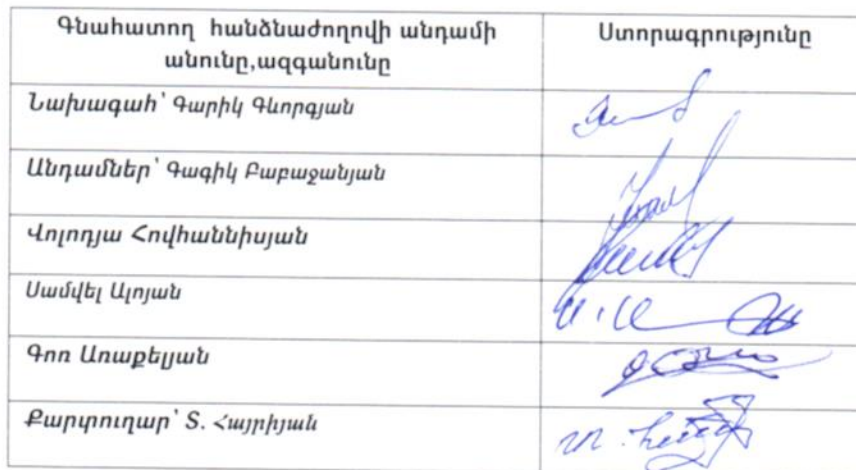 Գնահատող հանձնաժողովի անդամի
անունը,ազգանունը
Ստորագրությունը
Նախագահ՝ Գարիկ Գևորգյան
Անդամներ՝ Գագիկ Բաբաջանյան
Վոլոդյա Հովհաննիսյան
Սամվել Ալոյան
Գոռ Առաքելյան
Քարտուղար՝ Տ. Հայրիյան